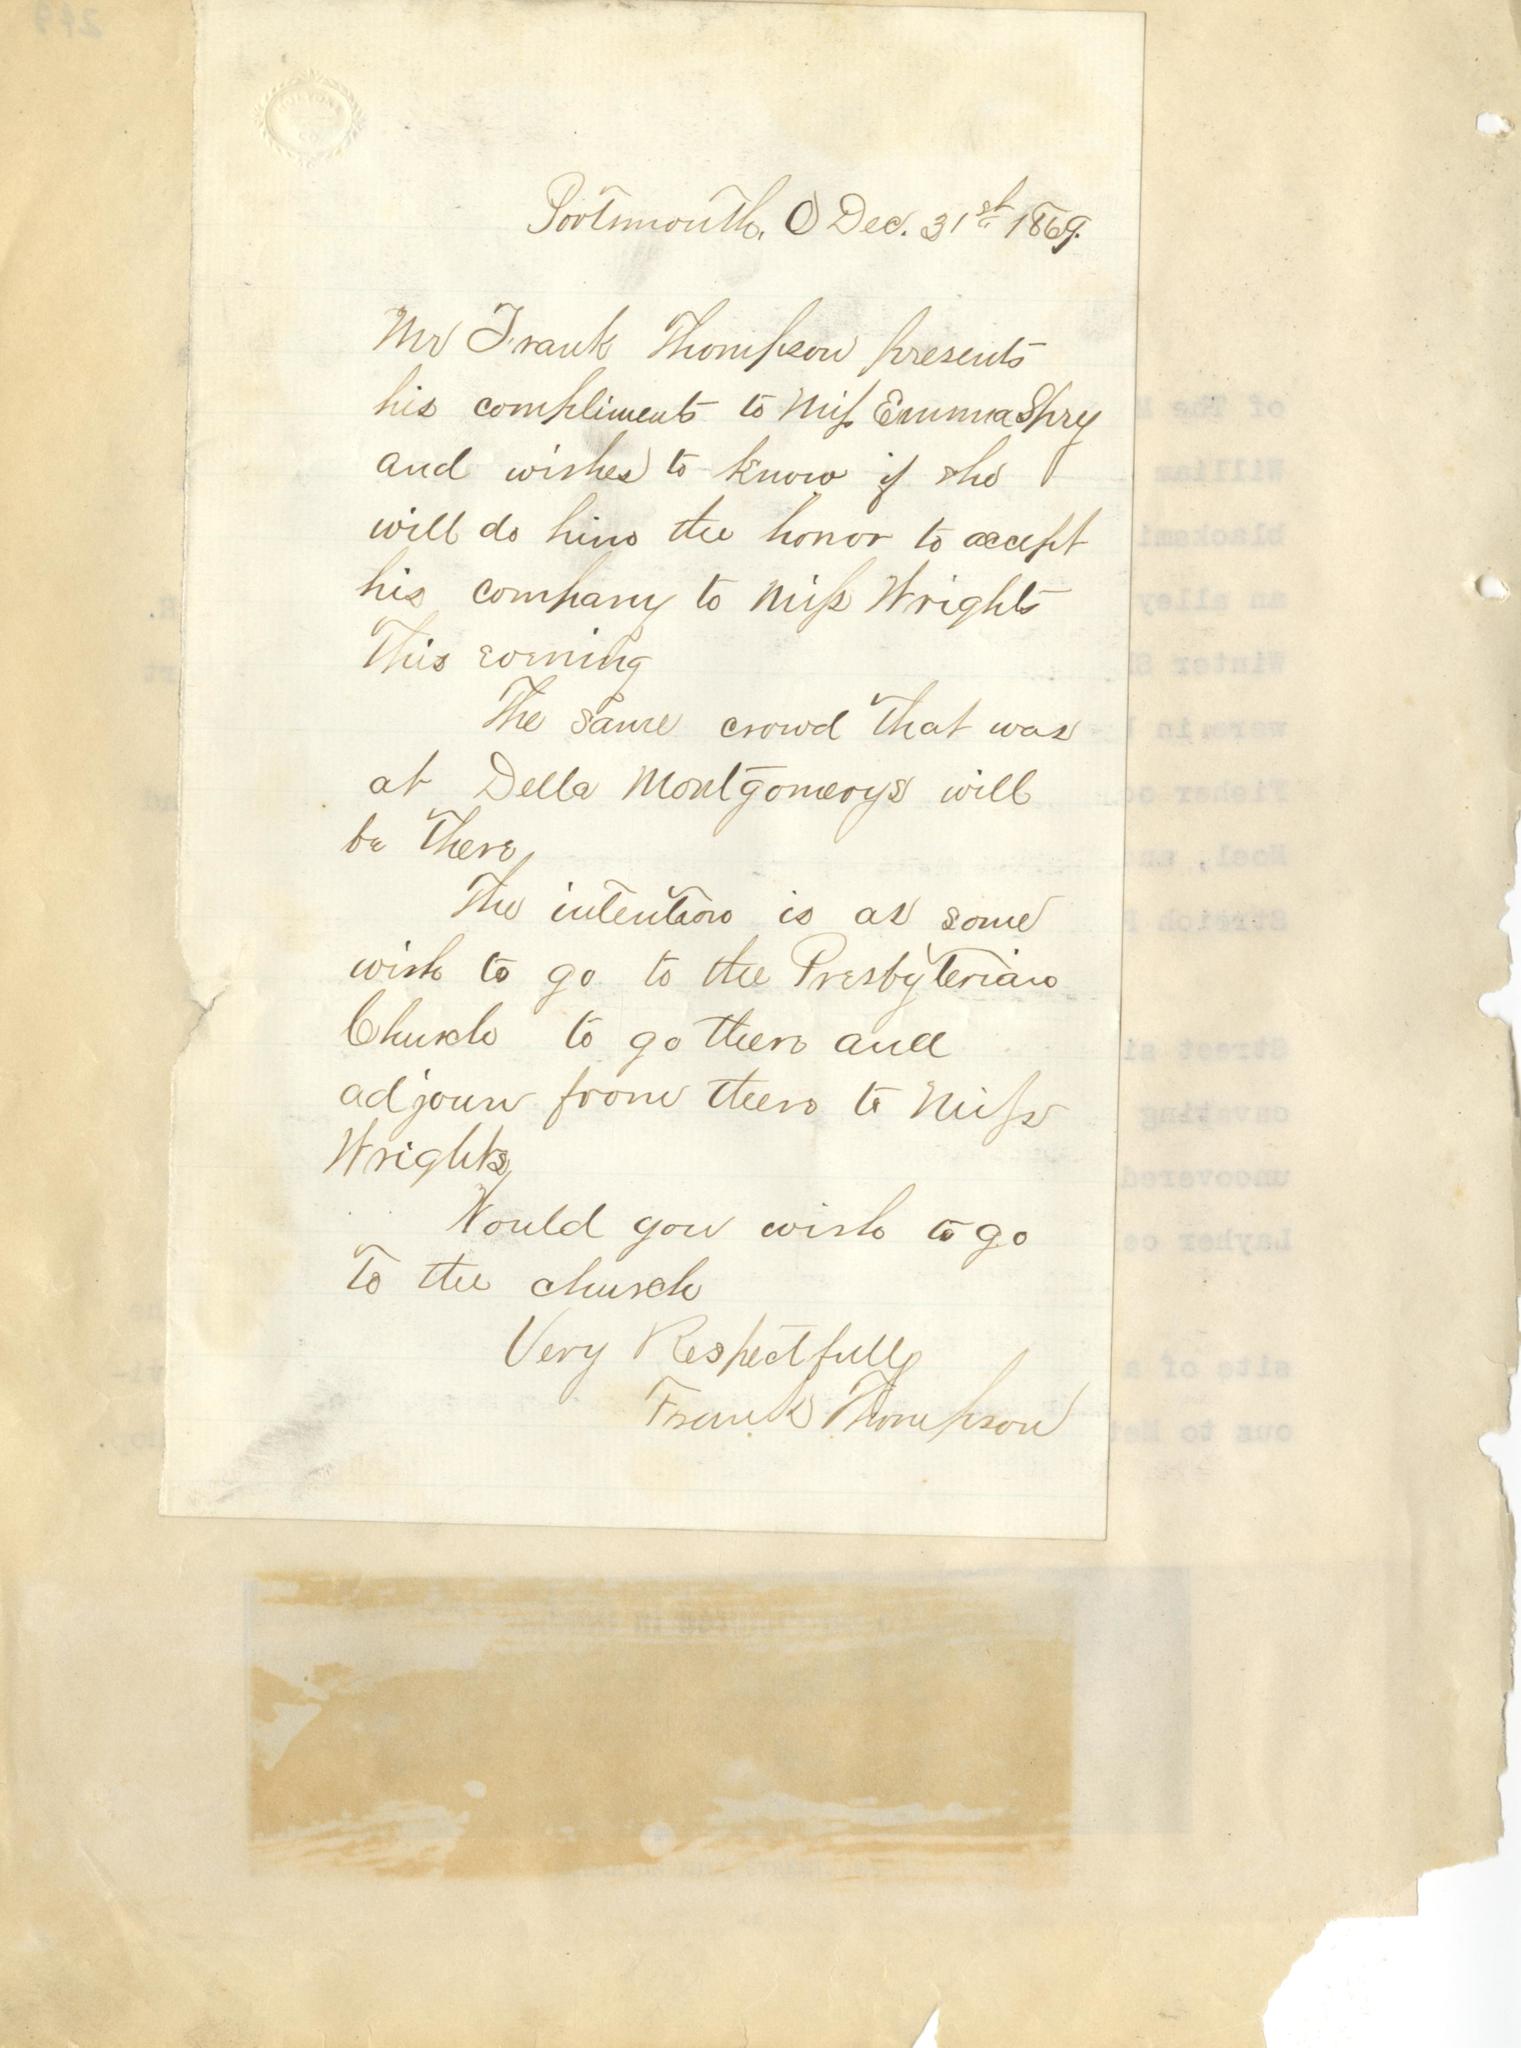 Portsmouth, O Dec. 31st 1869.
Mr Frank Thompson presents
his compliments to Miss Emma Spry
and wishes to know if she
will do him the honor to accept
his company to Miss Wrights
This evening
The same crowd that was
at Della Montgomerys will
be there,
The intention is as some
wish to go to the Presbyterian
Church to go there and
adjourn from there to Miss
Wrights,
Would you wish to go
to the church
Very Respectfully
Frank Thompson
of The
William
blacksmi
an alley
Winter S
were in
Fisher
Noel, an
Streich
Street si
cavating
uncovered
Layher
site of a
ous to